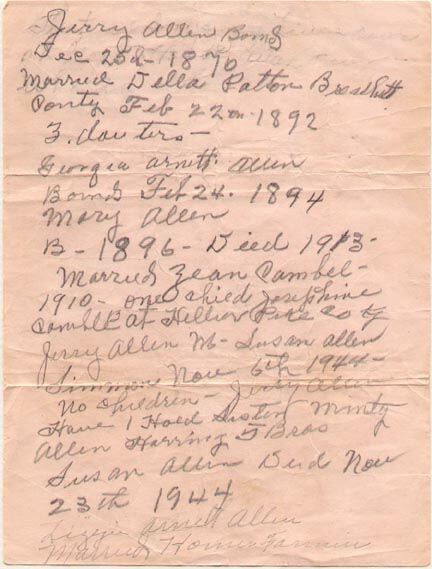 Jerry Allen Bornd
Dec 25th - 1870
Married Della Patton Breathitt
Conty Feb 22nd - 1892
3. dauters -
Georgia Arnett Allen
Bornd Feb 24. 1894
Mary Allen
B - 1896 - Died 1913 -
Married Zean Cambel -
1910 - one child Josephine
Cambell at Hellier Pike Co Ky
Jerry Allen M - Susan Allen
Simmons Nov 6th 1944 -
No children - Jerry Allen
Have 1 Hold Sister Minty
Allen Harring 5 Bros
Susan Allen Died Nov
23th 1944
Lizzie Arnett Allen
Married Homer Fannin